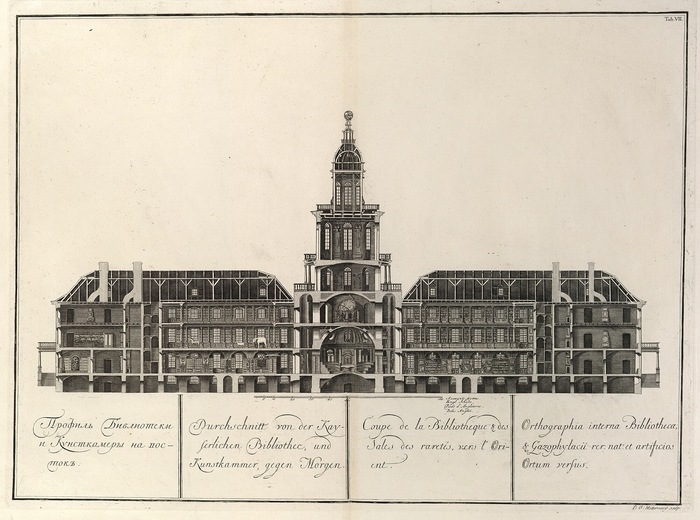 Tab. VII.
Профиль Библиотеки
и Кунсткамеры на вос-
токъ.
Durchschnitt von der Kay-
serlichen Bibliothec, und
Kunstkammer, gegen Morgen.
Coupe de la Bibliotheque & des
Sales des raretés, vers l'Ori-
ent.
Orthographia interna Bibliothecæ,
& Gazophylacii rer. nat. et artificios
Ortum versus.